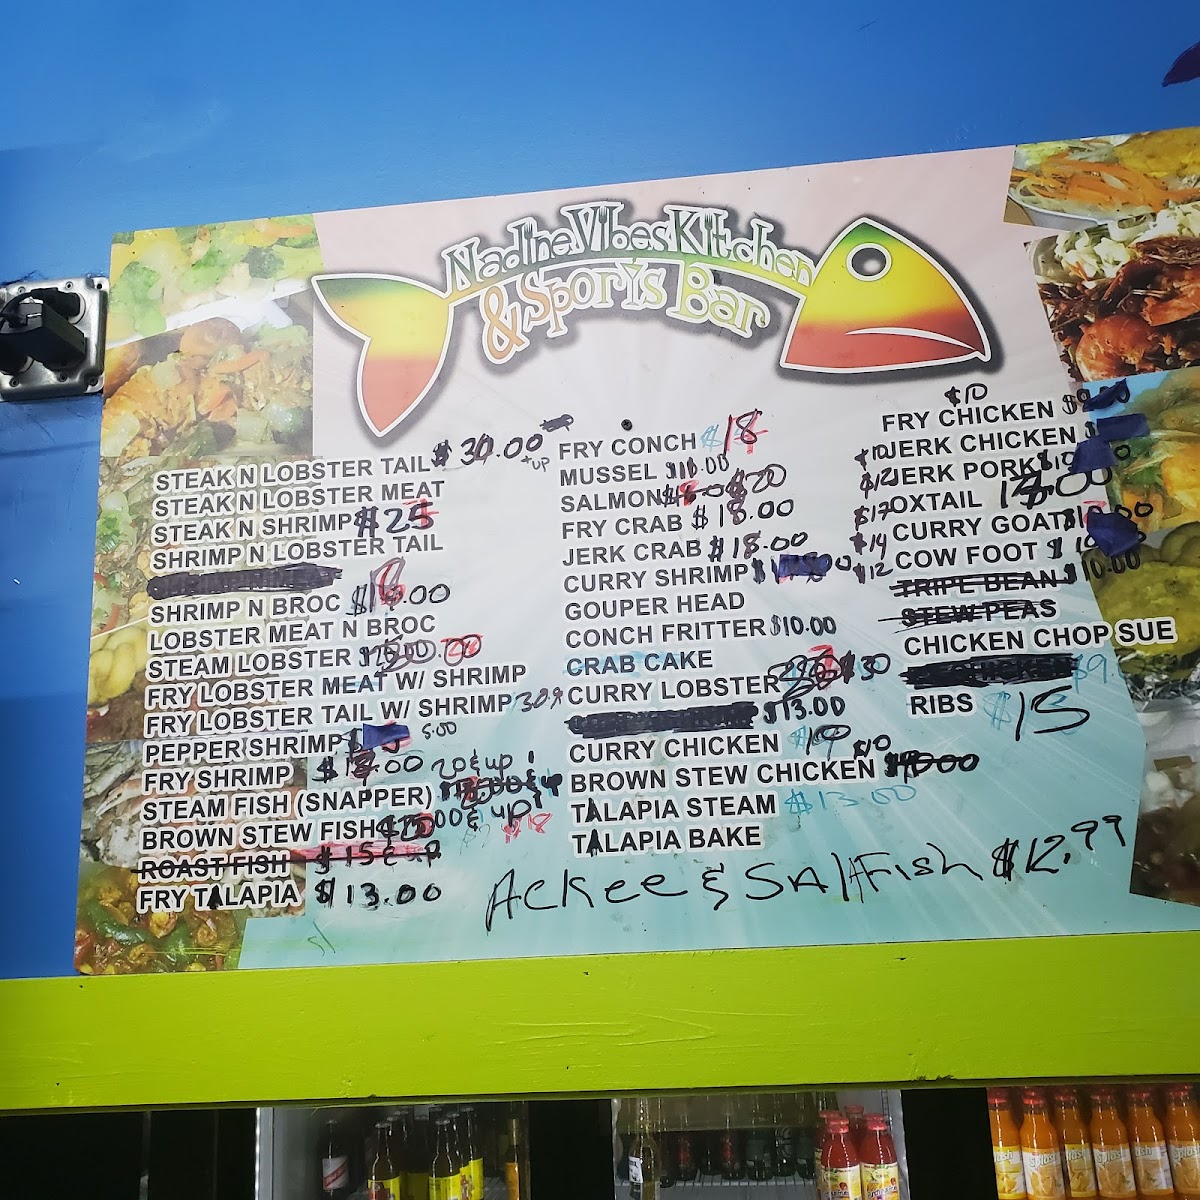 Nadine Vibes Kitchen
& Sports Bar
STEAK N LOBSTER TAIL $ 30.00 +up
STEAK N LOBSTER MEAT
STEAK N SHRIMP $25
SHRIMP N LOBSTER TAIL
SHRIMP N BROC
LOBSTER MEAT N BROC
STEAM LOBSTER
FRY LOBSTER MEAT W/ SHRIMP
FRY LOBSTER TAIL W/ SHRIMP
PEPPER SHRIMP 5.00
FRY SHRIMP
STEAM FISH (SNAPPER) 20 & up
BROWN STEW FISH
ROAST FISH $15 & up
FRY TALAPIA $13.00
FRY CONCH 18
MUSSEL
SALMON $20
FRY CRAB $18.00
JERK CRAB $18.00
CURRY SHRIMP
GOUPER HEAD
CONCH FRITTER $10.00
CRAB CAKE
CURRY LOBSTER $30
$13.00
CURRY CHICKEN
BROWN STEW CHICKEN $10
TALAPIA STEAM $13.00
TALAPIA BAKE
Ackee & SaltFish $12.99
FRY CHICKEN $10
JERK CHICKEN $10
JERK PORK $12
OXTAIL
CURRY GOAT $14
COW FOOT $12
TRIPE BEAN $10.00
STEW PEAS
CHICKEN CHOP SUE
RIBS $15
Splash